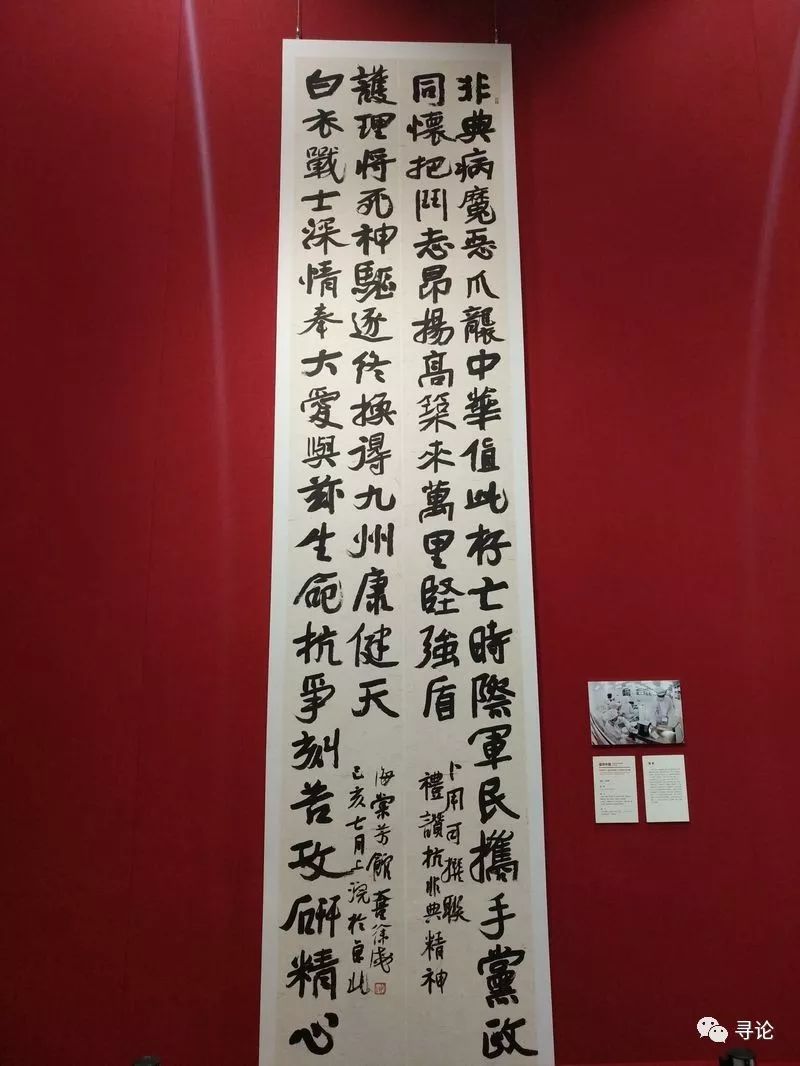 非典病魔惡爪襲中華值此存亡時際軍民攜手黨政
同懷把鬥志昂揚高築來萬里堅強盾
卜用可撰聯
禮讚抗非典精神
白衣戰士深情奉大愛與茲生命抗爭刻苦攻研精心
護理將死神驅逐終換得九州康健天
己亥七月上浣於京
海棠芳館徐
寻论